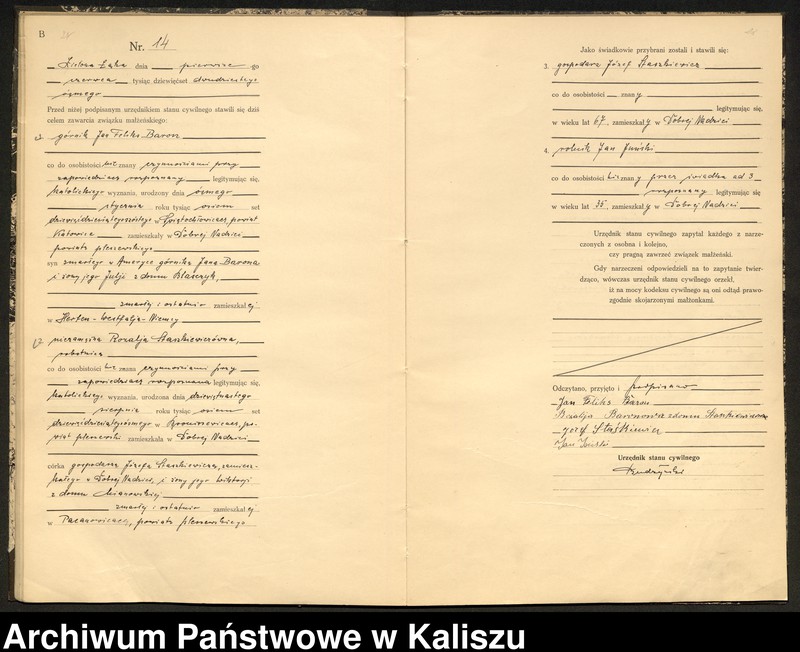 B
Nr. 14
Zielona Łąka dnia pierwsze go
czerwca tysiąc dziewięćset dwudziestego
ósmego
Przed niżej podpisanym urzędnikiem stanu cywilnego stawili się dziś
celem zawarcia związku małżeńskiego:
górnik Jan Feliks Baron
co do osobistości znany czynnościami przy
zapowiedziach rozpoznany legitymując się,
katolickiego wyznania, urodzony dnia ósmego
stycznia roku tysiąc ośiem set
w Świętochłowicach, powiat
Katowice zamieszkały w Dobrej Nadziei
powiatu pleszewskiego
syn zmarłego w Ameryce górnika Jana Barona
i żony jego Julji z domu Błaszczyk,
zmarłej i ostatnio zamieszkał ej
w Herten-Westfalja-Niemcy
2. niezamężna Rozalja Staszkiewiczówna,
robotnica
co do osobistości znana czynnościami przy
zapowiedziach rozpoznana legitymując się,
katolickiego wyznania, urodzona dnia dziewiętnastego
sierpnia roku tysiąc ośiem set
w po-
wiat pleszewski zamieszkała w Dobrej Nadziei
córka gospodarza Józefa Staszkiewicza, zamiesz-
kałego w Dobrej Nadziei, i żony jego Wiktorji
z domu
zmarłej i ostatnio zamieszkał ej
w Pacanowicach, powiatu pleszewskiego
Jako świadkowie przybrani zostali i stawili się:
3. gospodarz Józef Staszkiewicz
co do osobistości znan y
legitymując się,
w wieku lat 67, zamieszkał y w Dobrej Nadziei
4. rolnik Jan
co do osobistości znan y przez świadka ad 3
rozpoznany legitymując się
w wieku lat 35, zamieszkał y w Dobrej Nadziei
Urzędnik stanu cywilnego zapytał każdego z narze-
czonych z osobna i kolejno,
czy pragną zawrzeć związek małżeński.
Gdy narzeczeni odpowiedzieli na to zapytanie twier-
dząco, wówczas urzędnik stanu cywilnego orzekł,
iż na mocy kodeksu cywilnego są oni odtąd prawo-
zgodnie skojarzonymi małżonkami.
Odczytano, przyjęto i podpisano
Jan Feliks Baron
Rozalja Baronowa z domu Staszkiewiczówna
Józef Staśkiewicz
Jan
Urzędnik stanu cywilnego
Archiwum Państwowe w Kaliszu